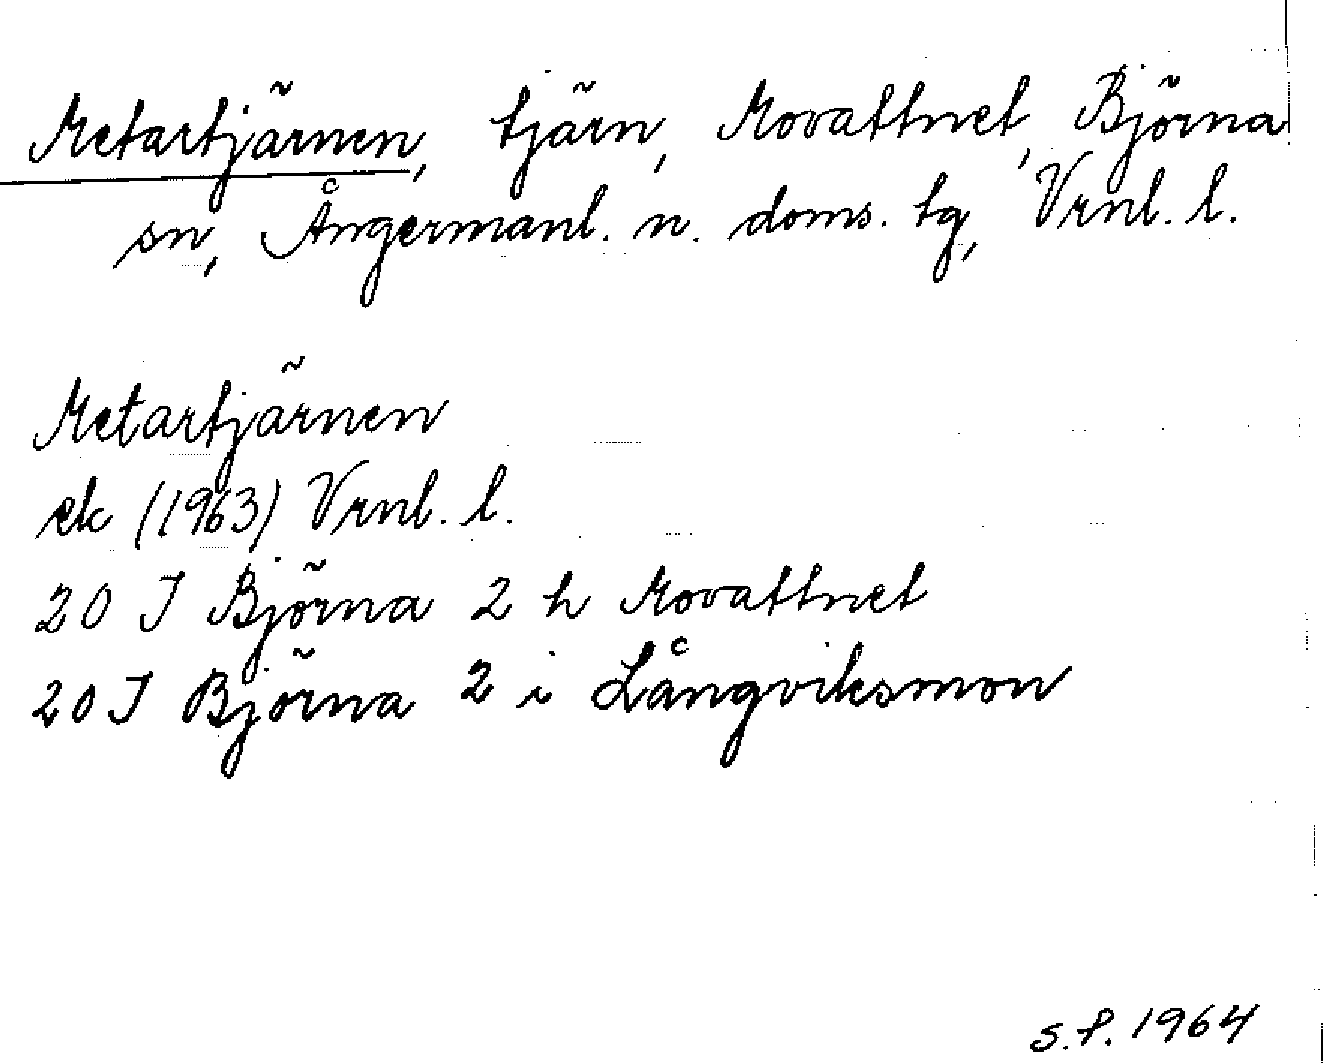 Metartjärnen, tjärn, Movattnet, Björna
sn, Ångermanl. n. doms. tg, Vrnl. l.
Metartjärnen
ek (1963) Vrnl. l.
20 J Björna 2 h Movattnet
20 J Björna 2 i Långviksmon
S.P. 1964